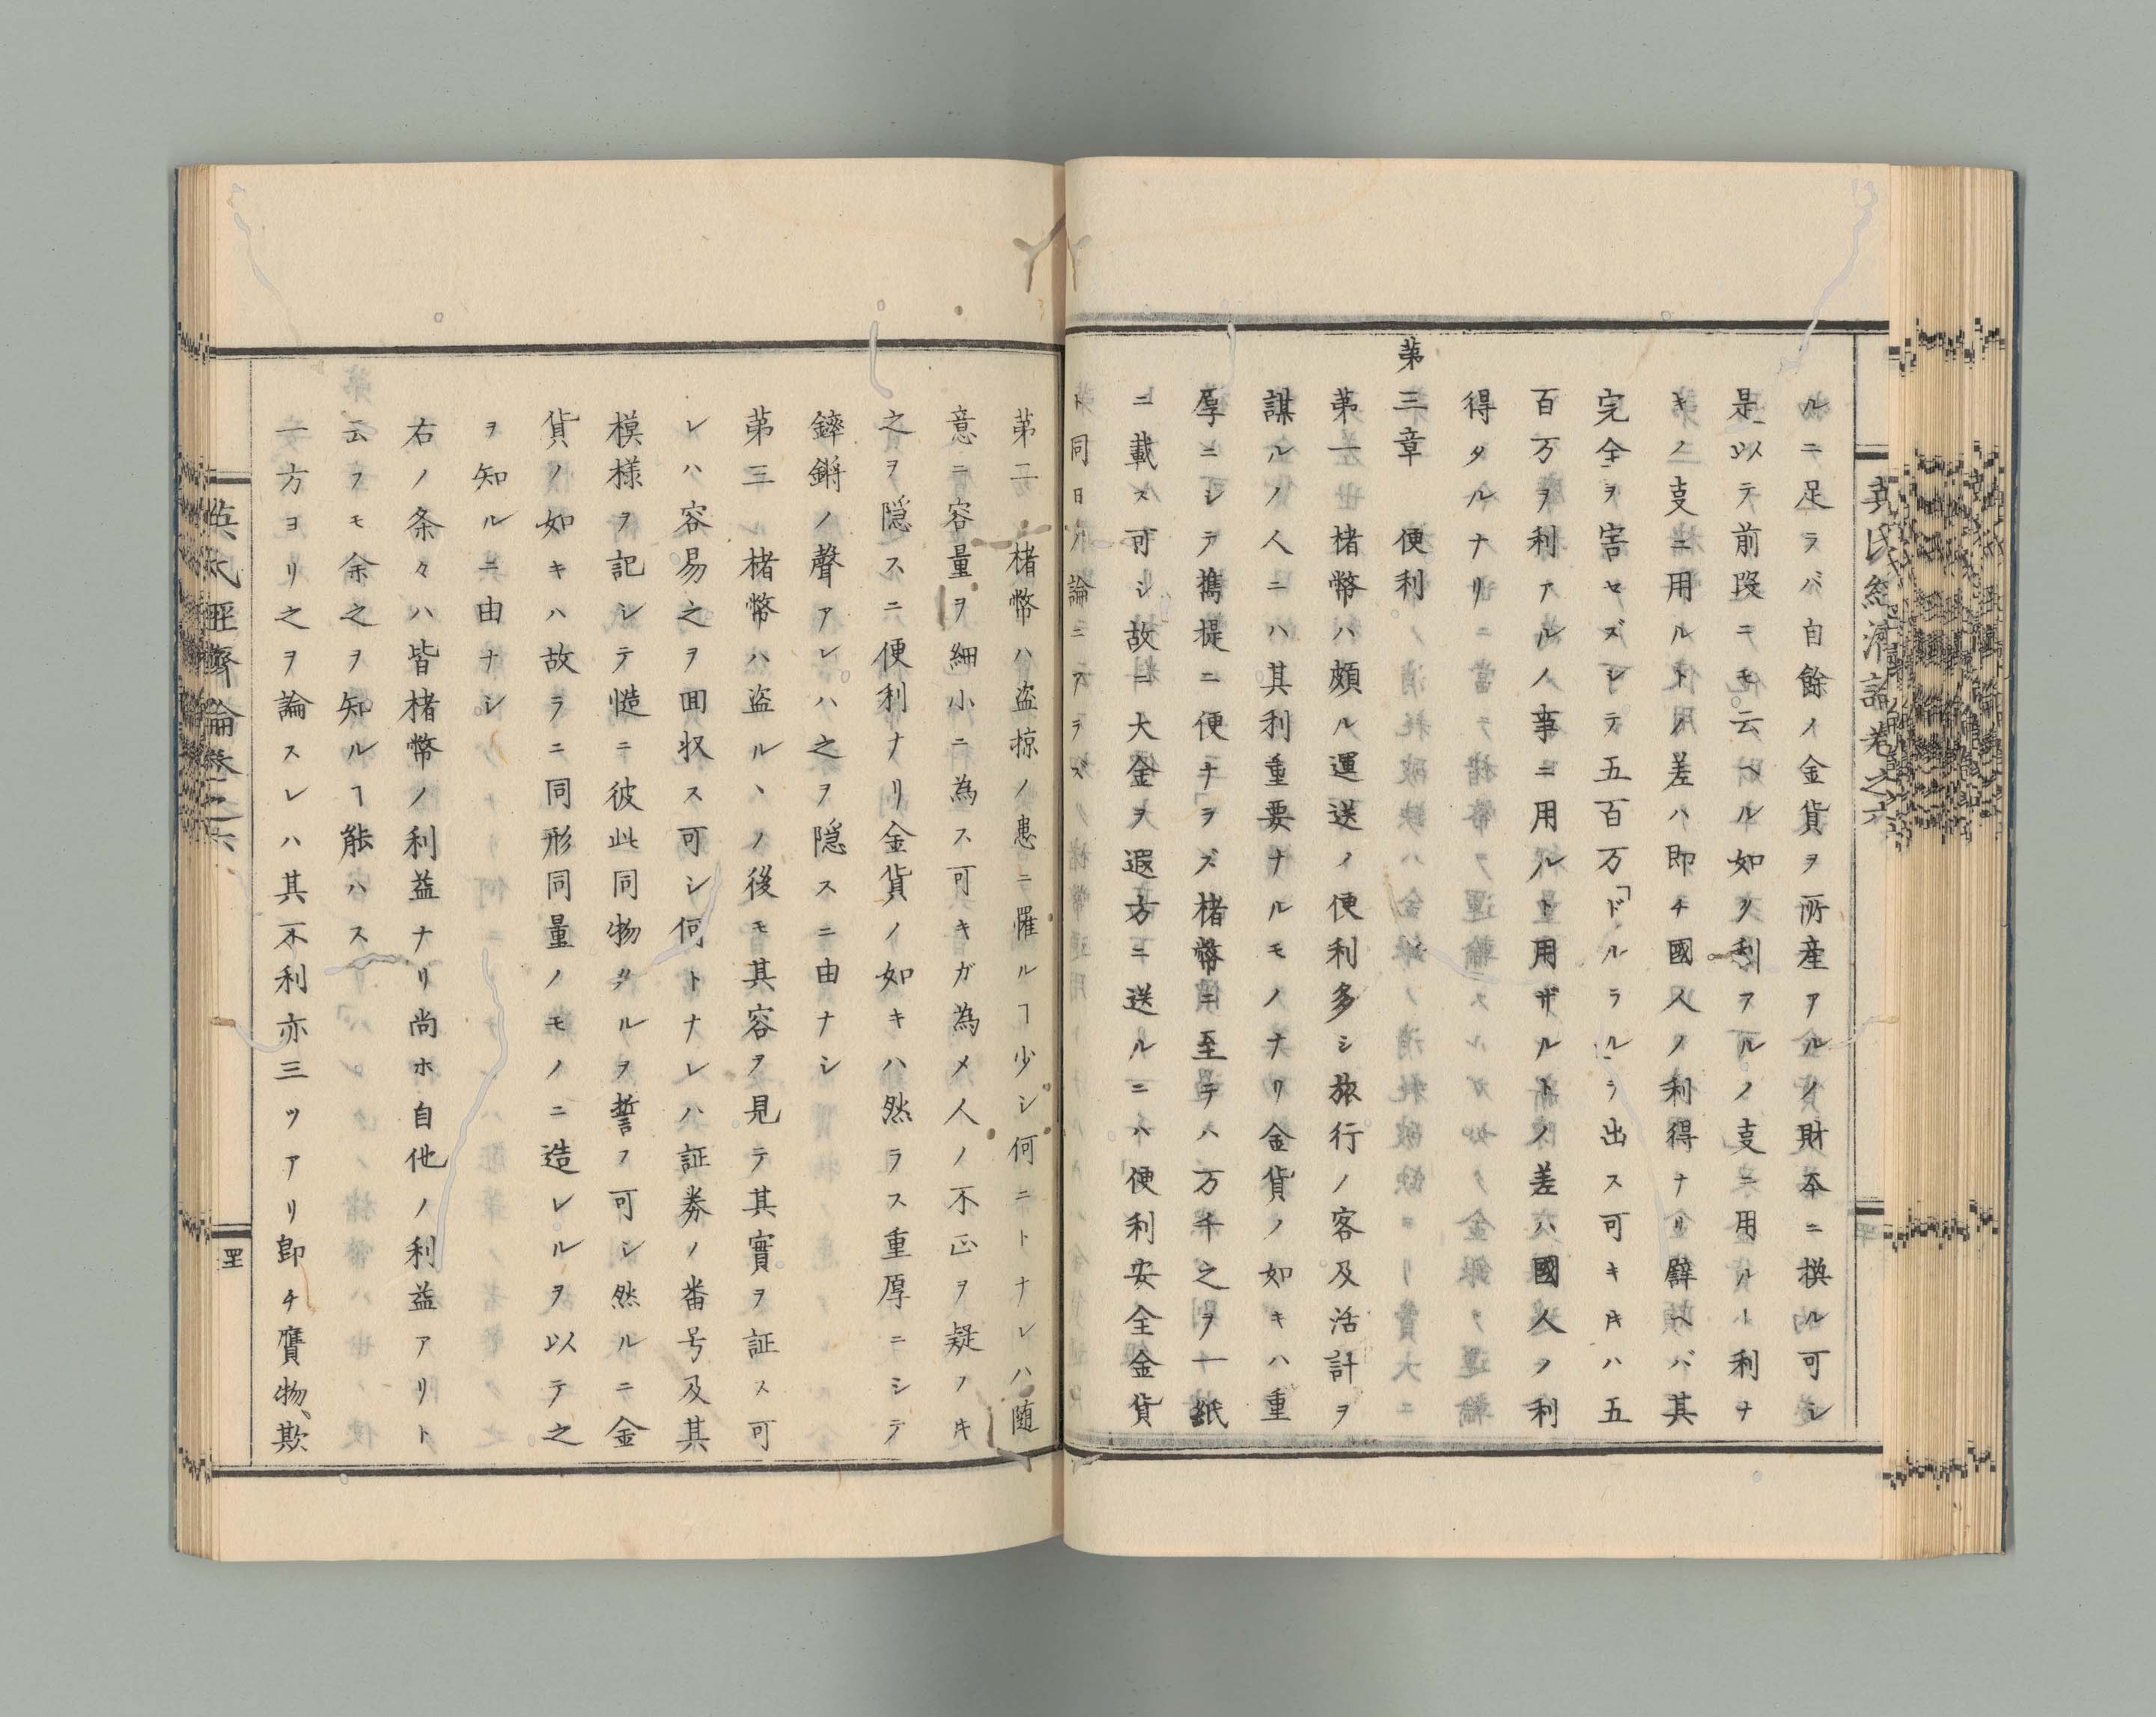 ルニ足ラバ自餘ノ金貨ヲ所産アルノ財本ニ換ル可シ
是以テ前段ニモ云ヘル如ク利アルノ支ニ用ルト利ナ
キノ支ニ用ルトノ差ハ即チ國人ノ利得ナリ譬ヘバ其
完全ヲ害セズシテ五百万「ドルラル」ヲ出ス可キ時ハ五
百万ヲ利アルノ事ニ用ルト用ザルトノ差ハ國人ノ利
得タルナリ
第三章 便利
第一 楮幣ハ頗ル運送ノ便利多シ旅行ノ客及活計ヲ
謀ルノ人ニハ其利重要ナルモノナリ金貨ノ如キハ重
厚ニシテ攜提ニ便ナラズ楮幣ニ至テハ万千之ヲ一紙
ニ載ス可シ故ニ大金ヲ遐方ニ送ルニハ便利安全金貨
ト同日ノ論ニアラズ
英氏經濟論卷之六
第二 楮幣ハ盗掠ノ患ニ罹ルヿ少シ何ニトナレハ随
意ニ容量ヲ細小ニ為ス可キガ為メ人ノ不正ヲ疑フ時
之ヲ隠スニ便利ナリ金貨ノ如キハ然ラス重厚ニシテ
鏗鏘ノ聲アレハ之ヲ隠スニ由ナシ
第三 楮幣ハ盗ルヽノ後モ其容ヲ見テ其實ヲ証ス可
レハ容易之ヲ回収ス可シ何トナレハ証券ノ番号及其
模様ヲ記シテ慥ニ彼此同物タルヲ誓フ可シ然ルニ金
貨ノ如キハ故ラニ同形同量ノモノニ造レルヲ以テ之
ヲ知ルニ由ナシ
右ノ条々ハ皆楮幣ノ利益ナリ尚ホ自他ノ利益アリト
云フモ余之ヲ知ルヿ能ハス
一方ヨリ之ヲ論スレハ其不利亦三ツアリ即チ贋物、欺
英氏經濟論卷之六